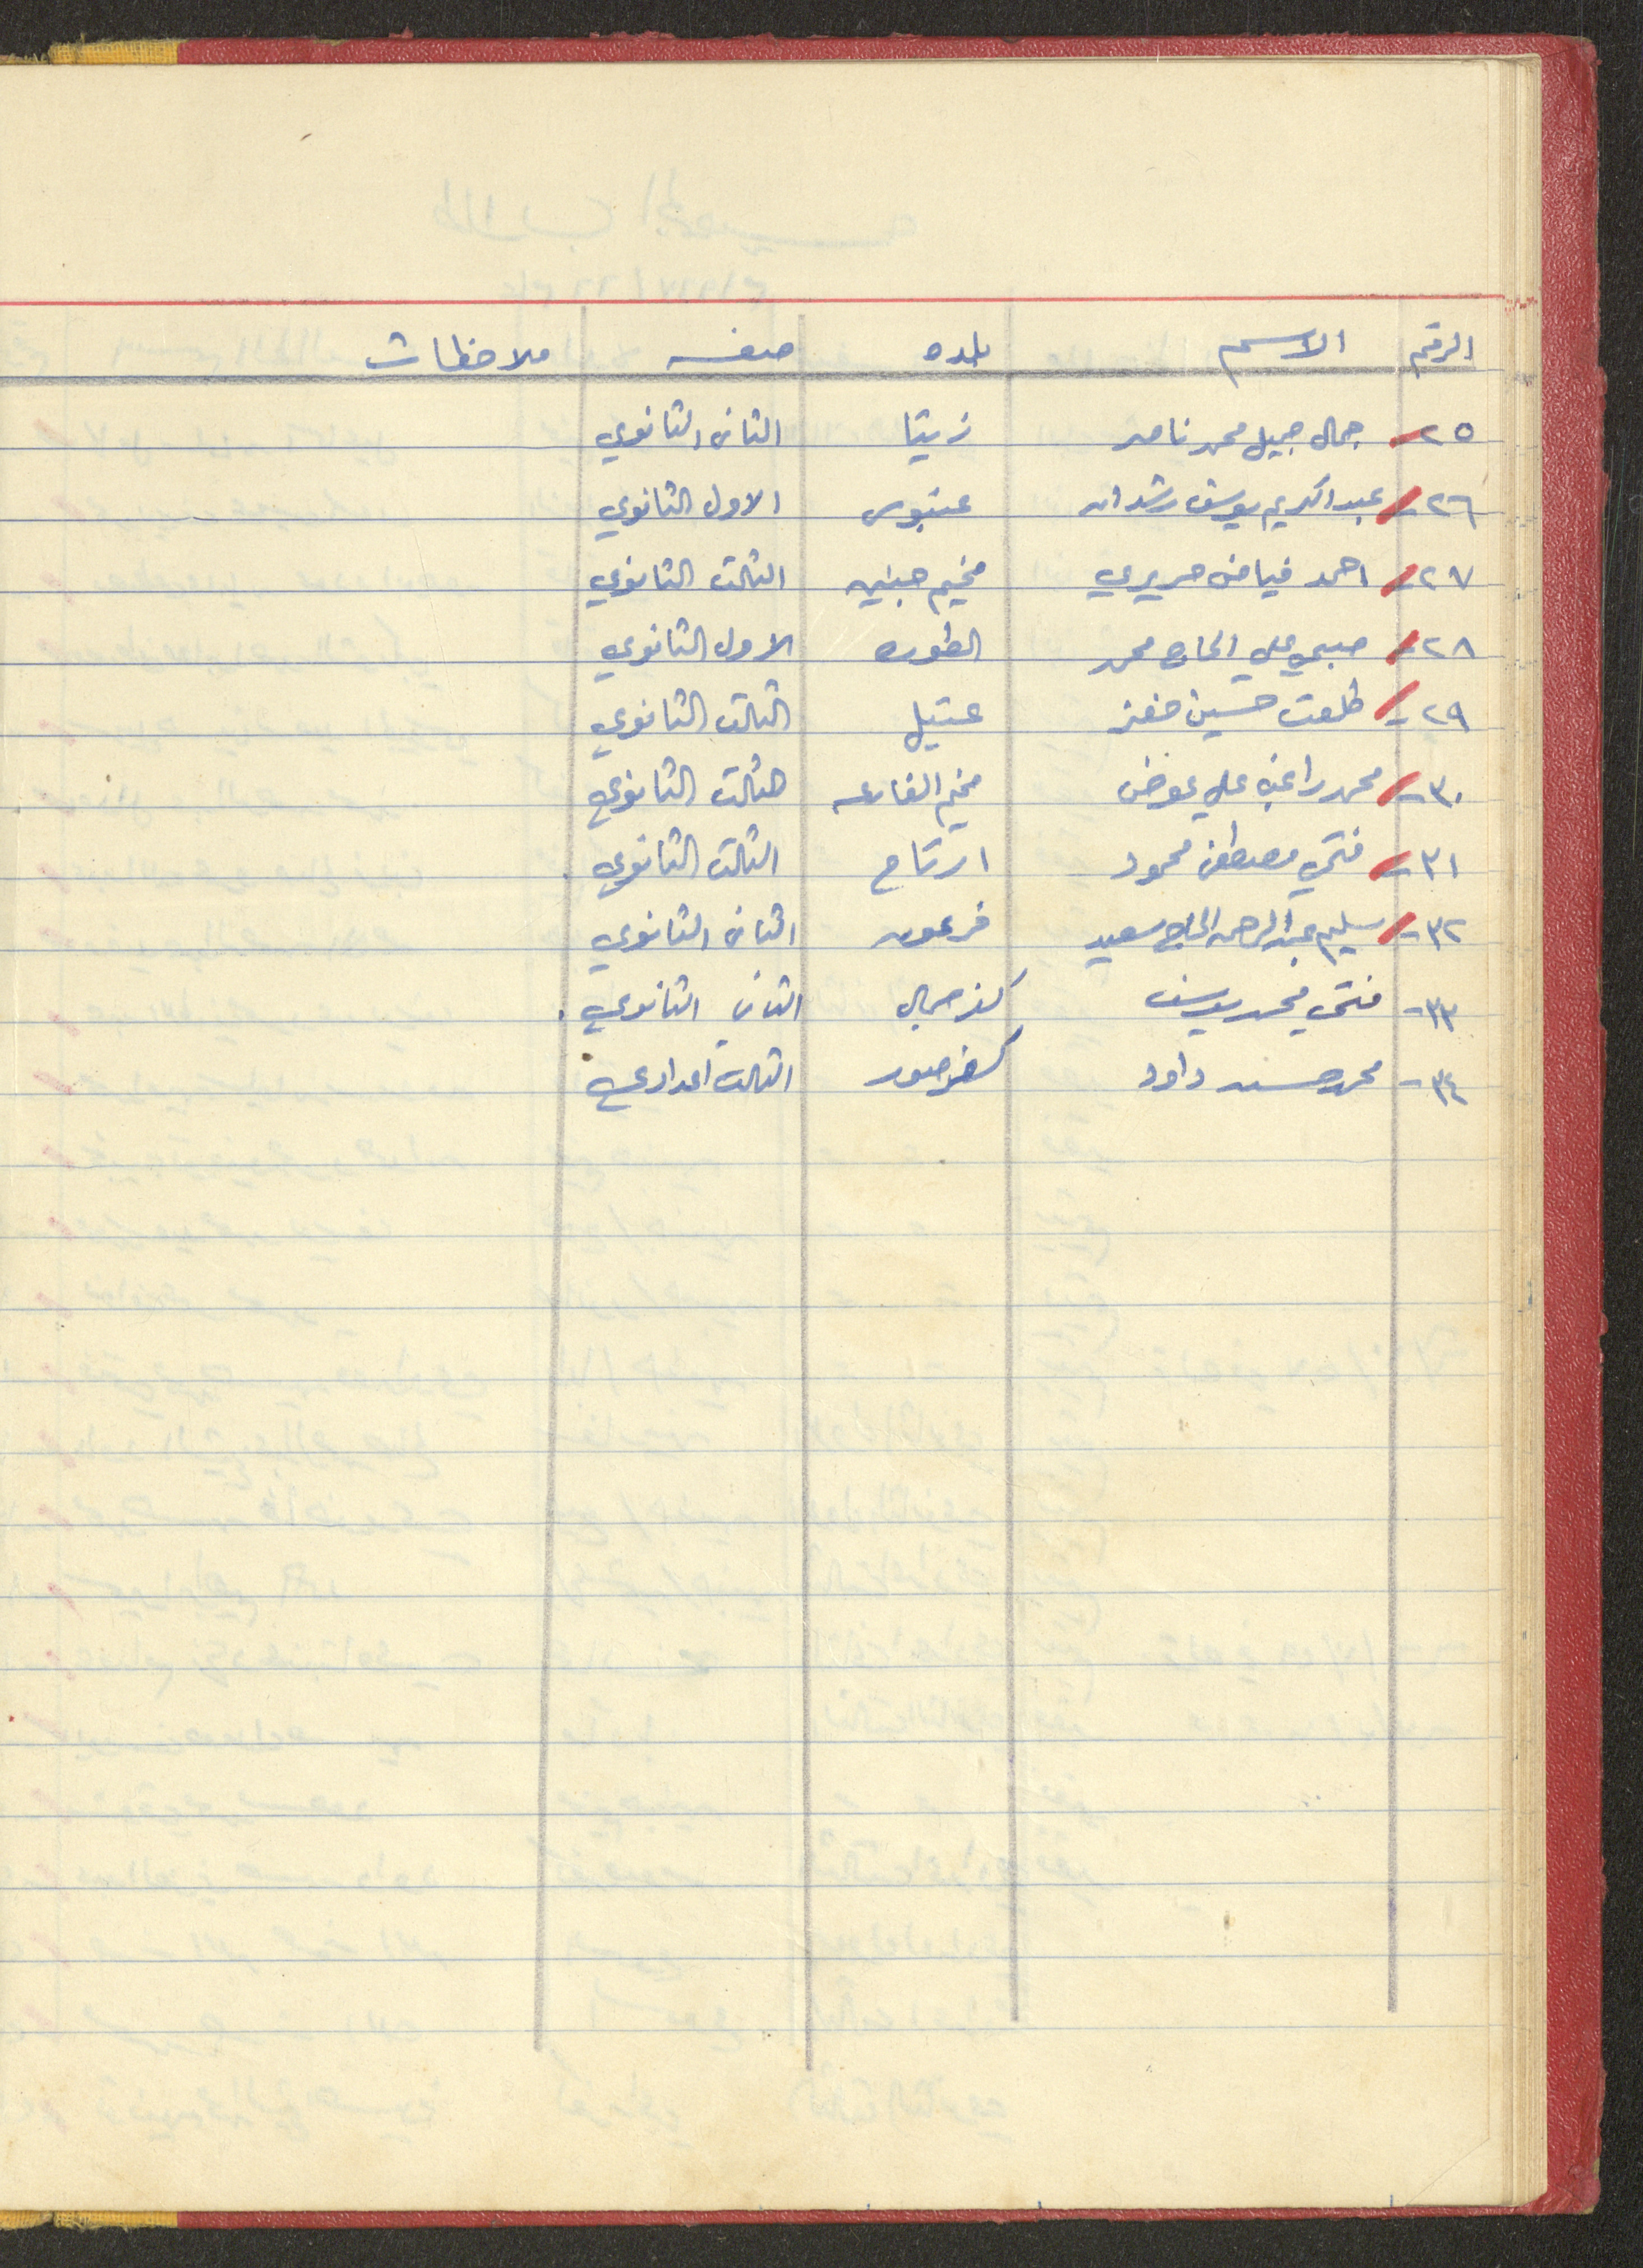 الرقم الاسم بلده صفه ملاحظات
٢٥- جمال جميل محمد ناصر زيتا الثاني الثانوي
٢٦- عبد الكريم يوسف رشدان عنبوس الاول الثانوي
٢٧- احمد فياض حريري مخيم جنين الثالث الثانوي
٢٨- صبحي علي الحاج محمد الطوره الاول الثانوي
٢٩- طلعت حسين عتيل الثالث الثانوي
٣٠- محمد راغب علي عوض مخيم الفارعه الثالث الثانوي
٣١- فتحي مصطفى محمود ارتاح الثالث الثانوي
٣٢- سليم عبد الرحمن الحاج سعيد فرعون الثاني الثانوي
٣٣- فتحي محمد يوسف كفر جمال الثاني الثانوي
٣٤- محمد حسن داود كفر صور الثالث اعدادي